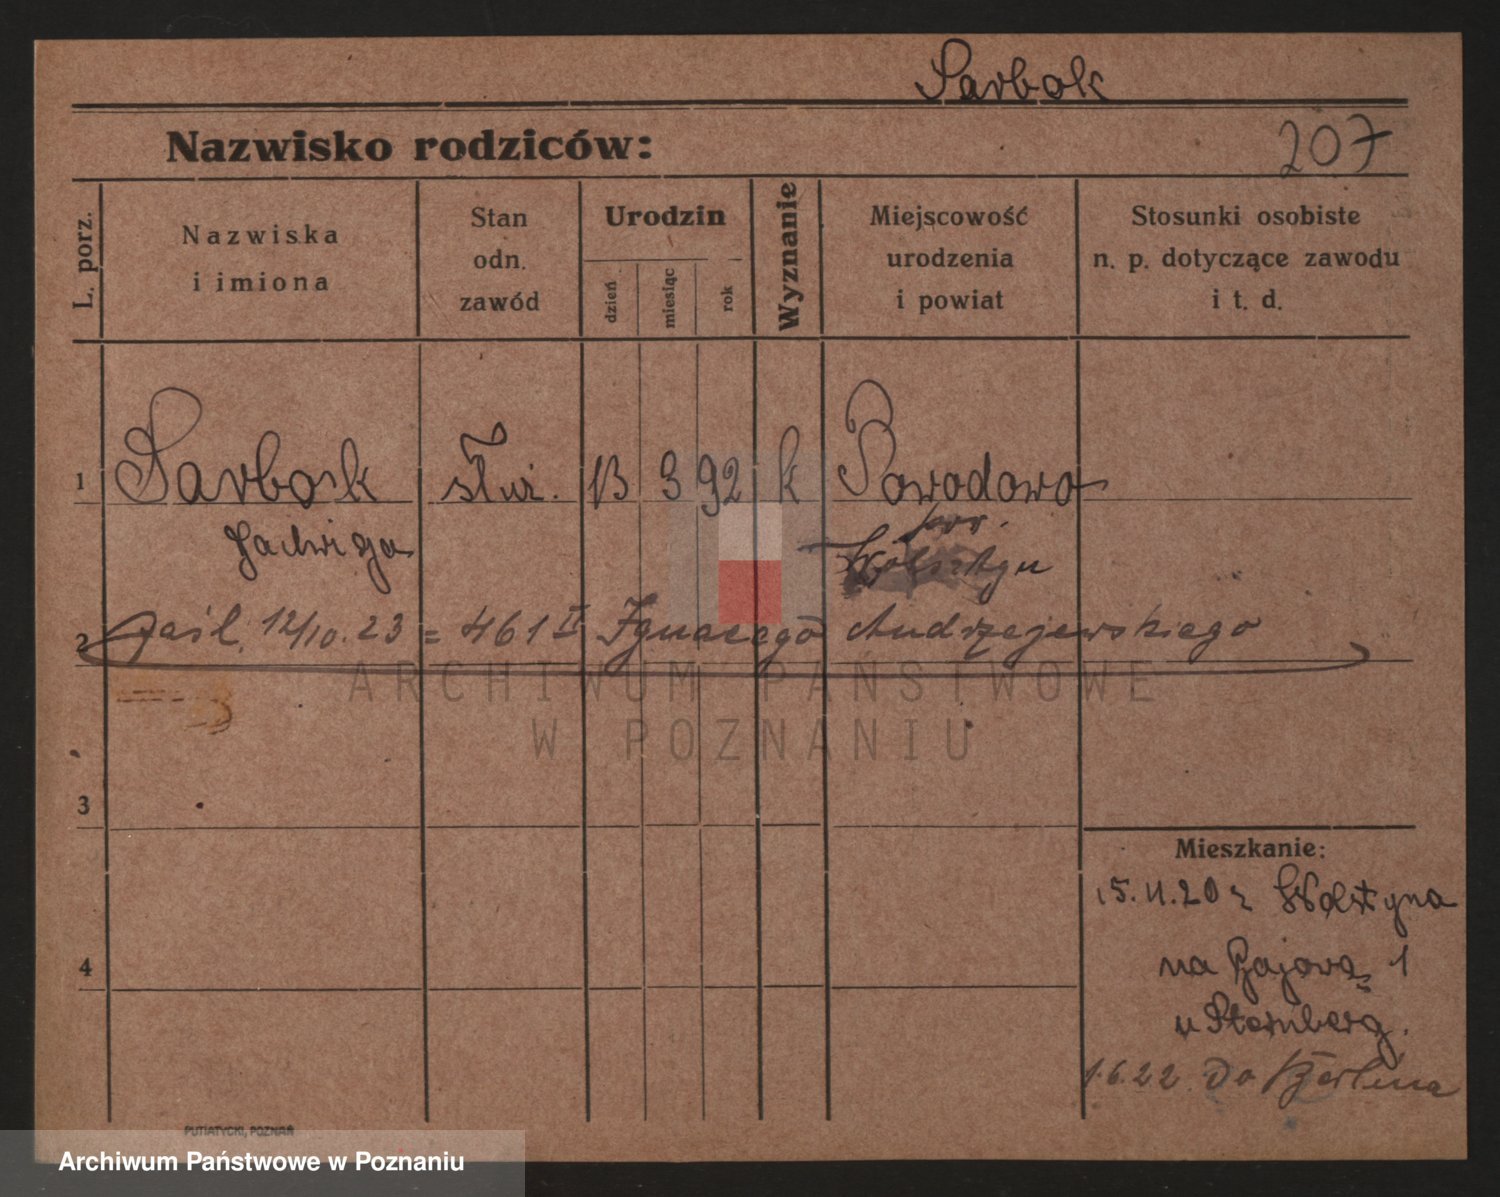 Sarbok
Nazwisko rodziców:
207
L. porz.
Nazwiska
i imiona
Stan
odn.
zawód
Urodzin
dzień
miesiąc
rok
Wyznanie
Miejscowość
urodzenia
i powiat
Stosunki osobiste
n. p. dotyczące zawodu
i t. d.
1 Sarbok służ. 13 3 92 k Powodowo
Jadwiga pow.
Wolsztyn
2 zaśl. 12/10.23 = 461 II Ignacego Andrzejewskiego
ARCHIWUM PAŃSTWOWE
W POZNANIU
3
4
Mieszkanie:
15.11.20 z Wolsztyna
na Gajową 1
u Sternberg.
1.6.22 do Berlina
PUTIATYCKI, POZNAŃ
Archiwum Państwowe w Poznaniu